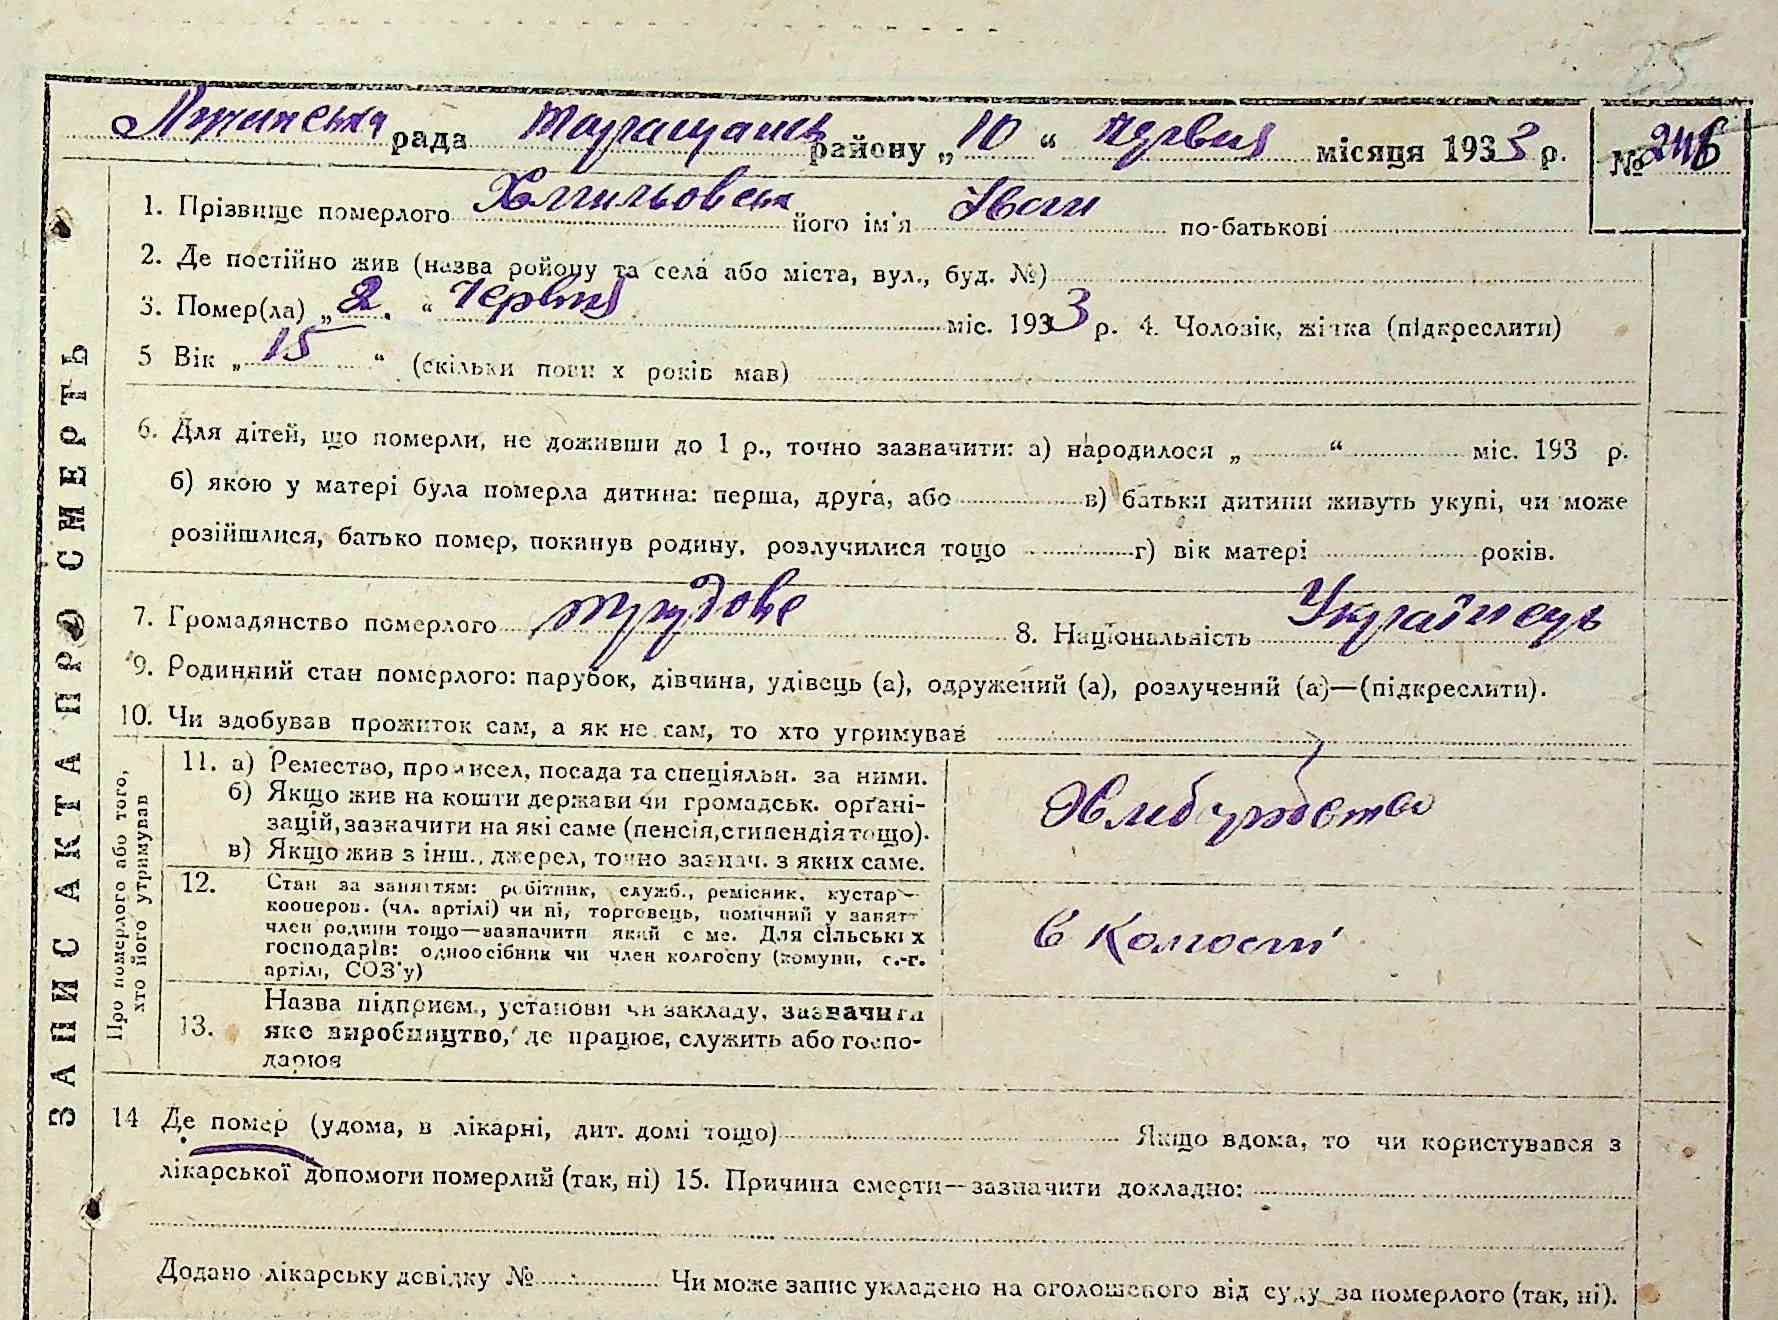 25
Лучанська рада Таращанськ району „10" червня місяця 1933 р. № 246
1. Прізвище померлого Хмильовськ його ім'я Іван по-батькові
2. Де постійно жив (назва району та села або міста, вул., буд. №)
3. Помер(ла) „2." Червня міс. 1933 р. 4. Чоловік, жінка (підкреслити)
5 Вік „15" (скільки повних років мав)
6. Для дітей, що померли, не доживши до 1 р., точно зазначити: а) народилося „ " міс. 193 р.
б) якою у матері була померла дитина: перша, друга, або в) батьки дитини живуть укупі, чи може
розійшлися, батько помер, покинув родину, розлучилися тощо г) вік матері років.
7. Громадянство померлого трудове 8. Національність Українець
9. Родинний стан померлого: парубок, дівчина, удівець (а), одружений (а), розлучений (а)—(підкреслити).
10. Чи здобував прожиток сам, а як не сам, то хто утримував
ЗАПИС АКТА ПРО СМЕРТЬ
Про померлого або того, хто його утримував
11. а) Ремество, промисел, посада та спеціяльн. за ними.
б) Якщо жив на кошти держави чи громадськ. орґані-
зацій, зазначити на які саме (пенсія, стипендія тощо).
в) Якщо жив з інш., джерел, точно зазнач. з яких саме.
Хлиборобство
12. Стан за заняттям: робітник, служб., ремісник, кустар—
кооперов. (чл. артілі) чи ні, торговець, помічний у занят—
член родини тощо—зазначити який саме. Для сільських
господарів: одноосібник чи член колгоспу (комуни, с.-г.
артілі, СОЗ'у)
в Колгоспі
13. Назва підприєм., установи чи закладу, зазначити
яке виробництво, де працює, служить або госпо-
дарює
14 Де помер (удома, в лікарні, дит. домі тощо) Якщо вдома, то чи користувався з
лікарської допомоги померлий (так, ні) 15. Причина смерти—зазначити докладно:
Додано лікарську довідку № Чи може запис укладено на оголошеного від суду за померлого (так, ні).